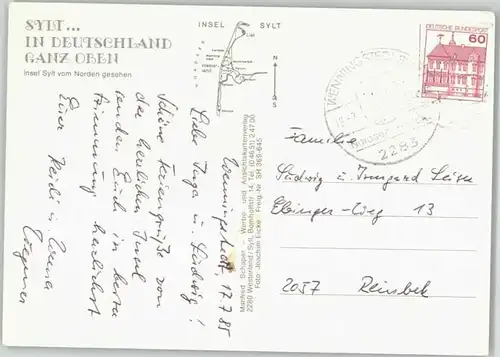 SYLT...
IN DEUTSCHLAND
GANZ OBEN
Insel Sylt vom Norden gesehen
INSEL SYLT
List
N
S
DEUTSCHE BUNDESPOST
60
WENNINGSTEDT
2283
Wenningstedt 17.7.85
Liebe Inga u. Ludwig!
Schöne Feriengrüße von
der herrlichen Insel
senden Euch in bester
Stimmung herzlichst
Eure Heidi u.
Manfred Schaper - Werbe- und Ansichtskartenverlag
2280 Westerland / Sylt, Tel. (0 46 51) 2 47 00
Foto: Joachim Eicke · Freig. Nr. SH 369-645
Familie
Ludwig u. Irmgard
Ebinger-Weg 13
2057 Reinbek